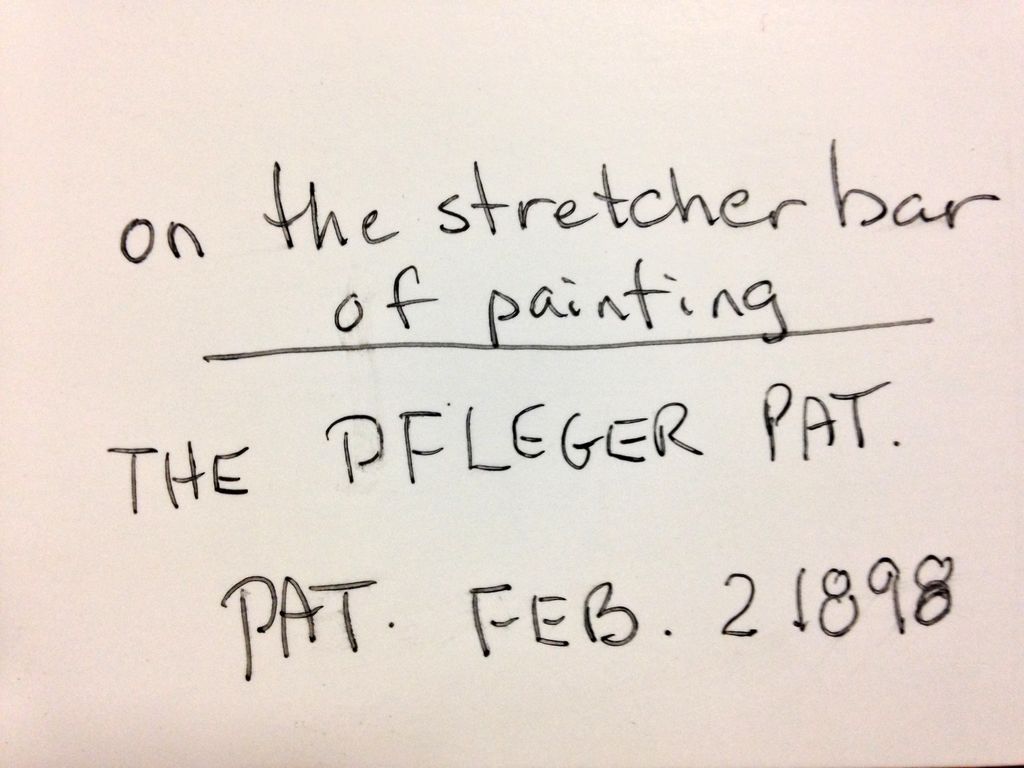 on the stretcher bar
of painting
THE PFLEGER PAT.
PAT. FEB. 2 1898